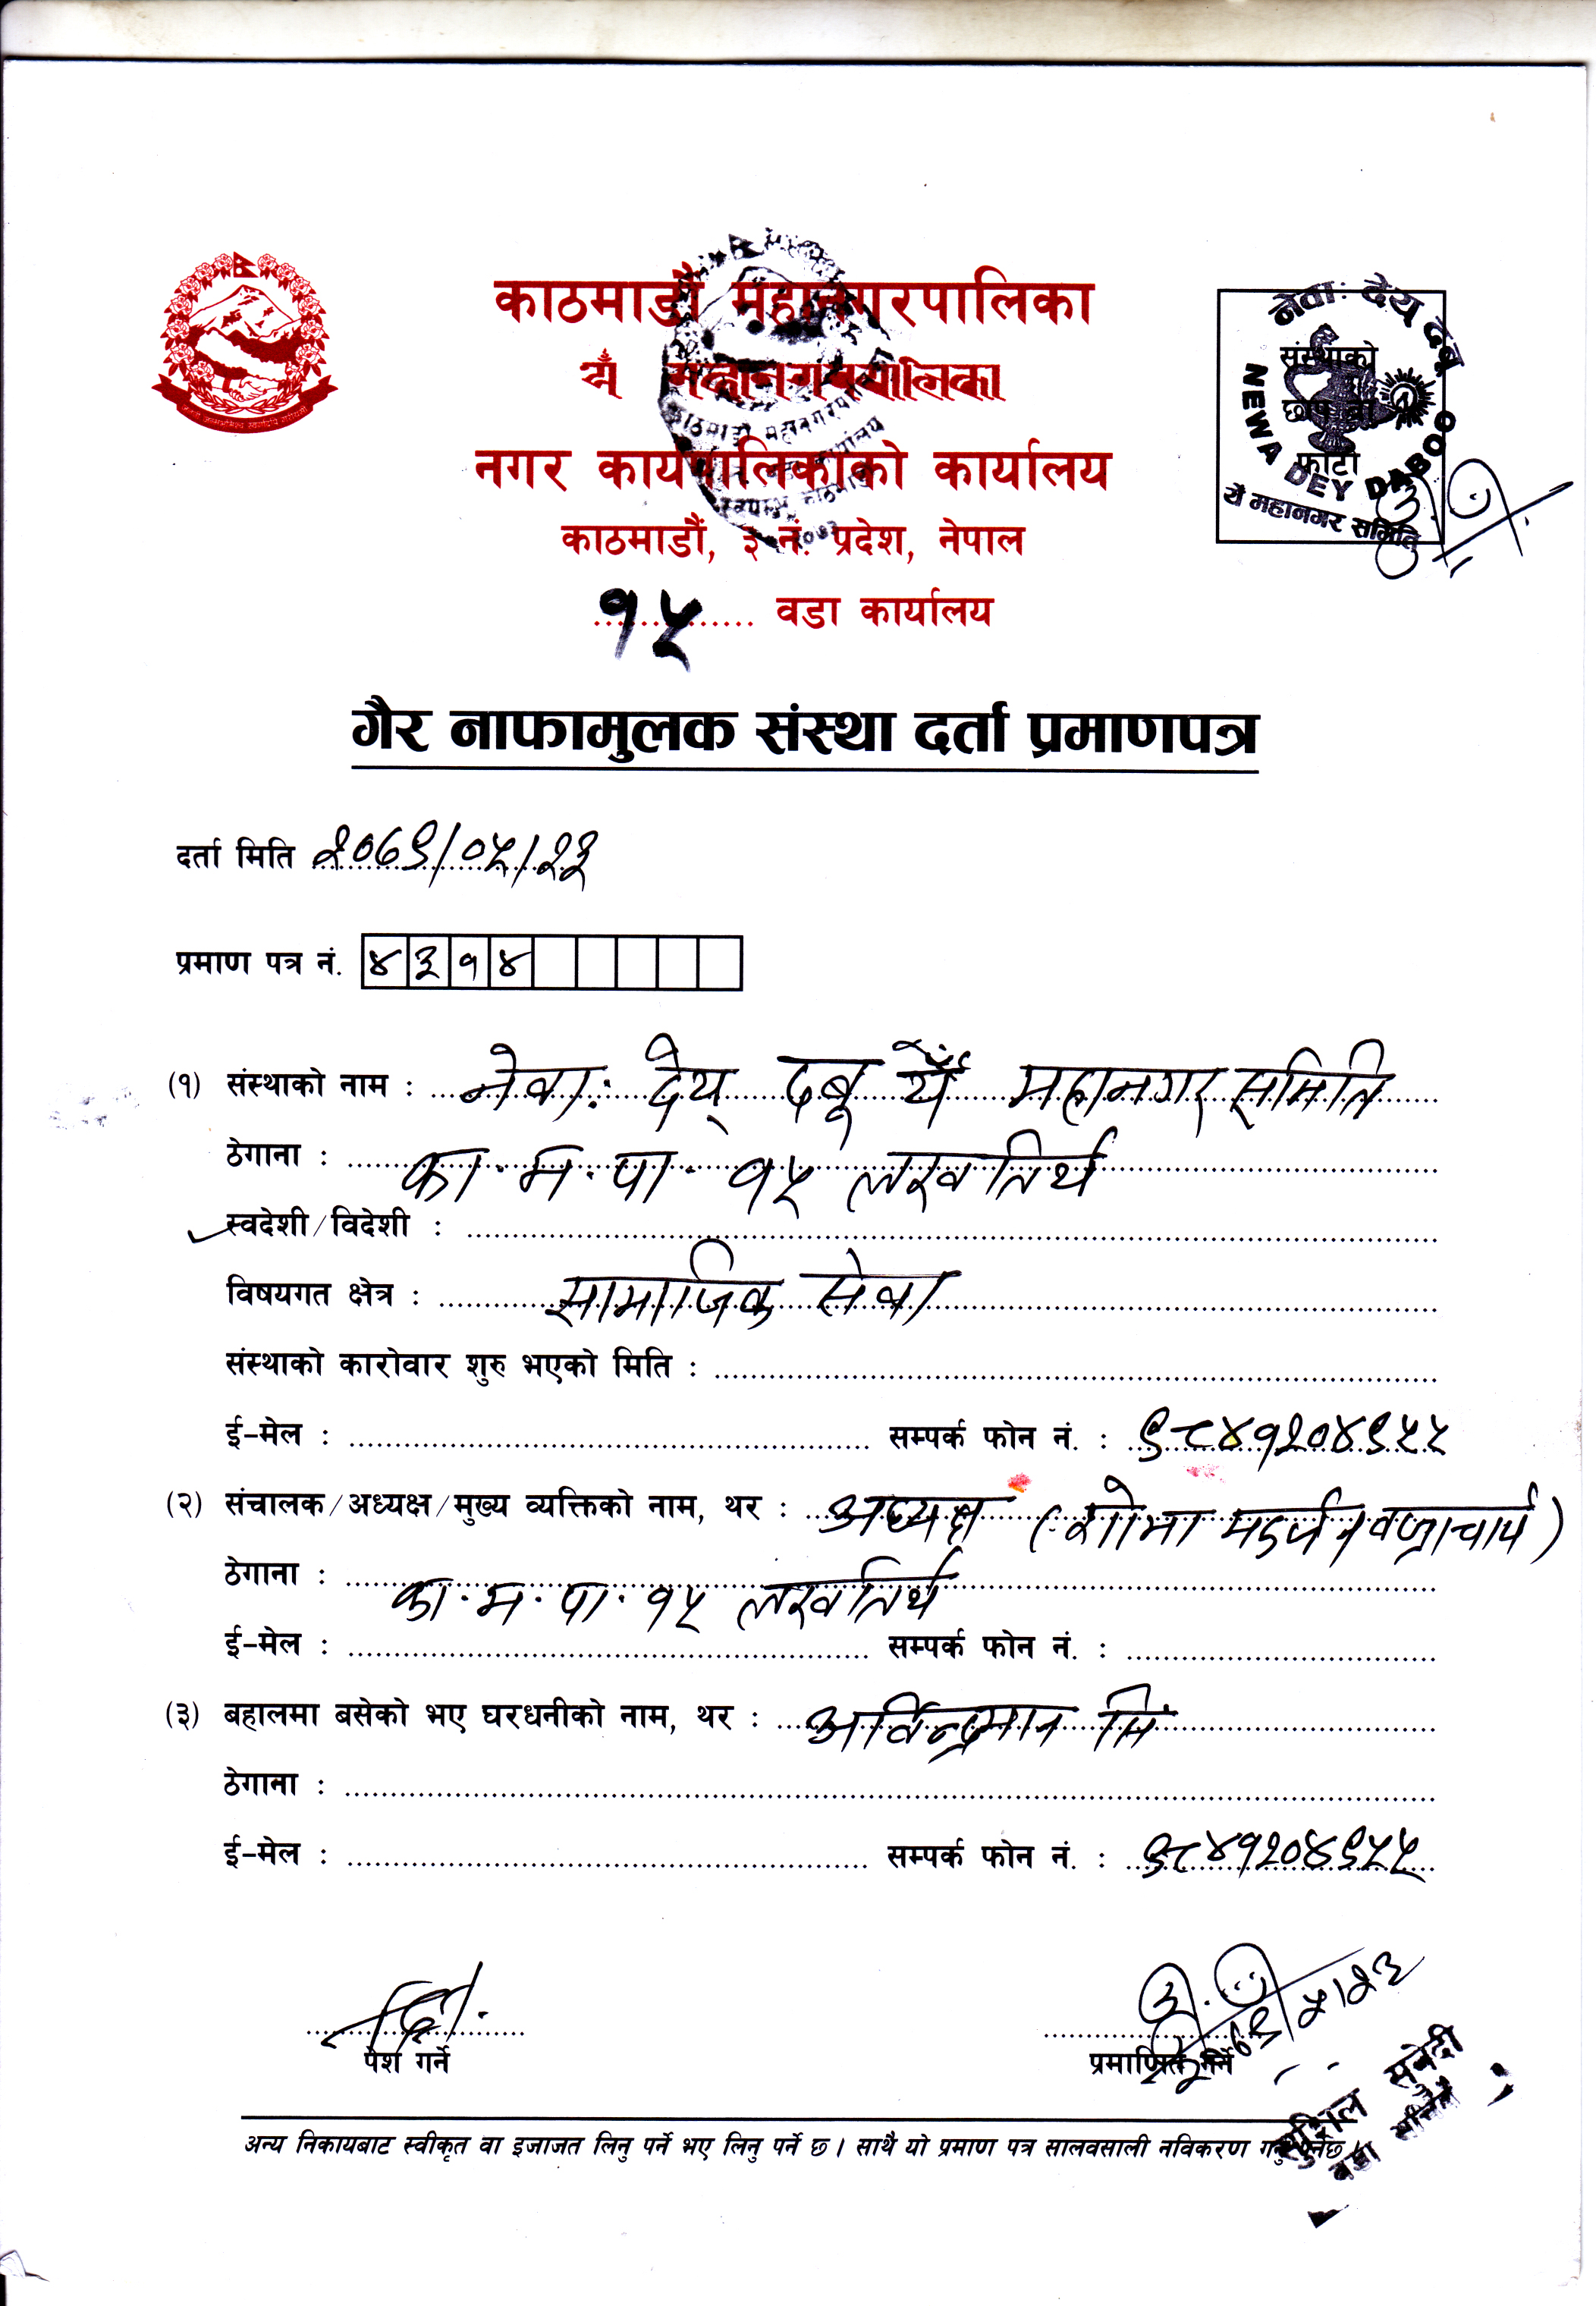 काठमाडौं महानगरपालिका
नगर कार्यपालिकाको कार्यालय
काठमाडौं, ३ नं. प्रदेश, नेपाल
१५ वडा कार्यालय
नेवाः देय दबू
संस्थाको
छाप वा
फोटो
NEWA DEY DABOO
यें महानगर समिति
गैर नाफामुलक संस्था दर्ता प्रमाणपत्र
दर्ता मिति २०७९/०५/२३
प्रमाण पत्र नं. ४३१४
(१) संस्थाको नाम : नेवाः देय् दबू यें महानगर समिति
ठेगाना : का.म.पा. १५ लखतिर्थ
स्वदेशी/विदेशी :
विषयगत क्षेत्र : सामाजिक सेवा
संस्थाको कारोवार शुरु भएको मिति :
ई-मेल : सम्पर्क फोन नं. : ९८४१२०४९५५
(२) संचालक/अध्यक्ष/मुख्य व्यक्तिको नाम, थर : अध्यक्ष (शोभा वज्राचार्य)
ठेगाना : का.म.पा. १५ लखतिर्थ
ई-मेल : सम्पर्क फोन नं. :
(३) बहालमा बसेको भए घरधनीको नाम, थर :
ठेगाना :
ई-मेल : सम्पर्क फोन नं. : ९८४१२०४९५५
पेश गर्ने
प्रमाणित गर्ने
सुशिल सुवेदी
वडा सचिव
अन्य निकायबाट स्वीकृत वा इजाजत लिनु पर्ने भए लिनु पर्ने छ । साथै यो प्रमाण पत्र सालवसाली नविकरण गर्नु पर्नेछ ।